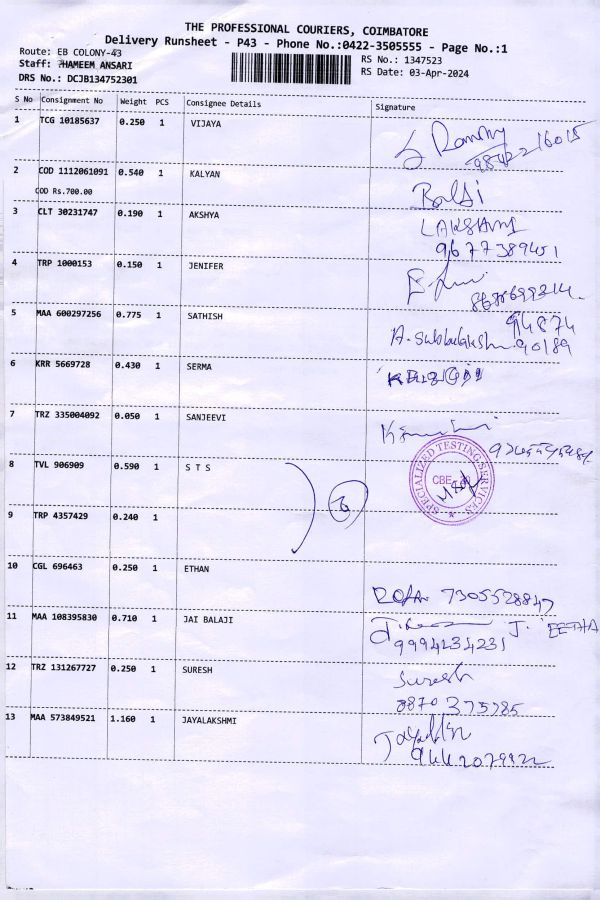 THE PROFESSIONAL COURIERS, COIMBATORE
Delivery Runsheet - P43 - Phone No.:0422-3505555 - Page No.:1
Route: EB COLONY-43
Staff: THAMEEM ANSARI
DRS No.: DCJB134752301
RS No.: 1347523
RS Date: 03-Apr-2024
S No Consignment No Weight PCS Consignee Details Signature
1 TCG 10185637 0.250 1 VIJAYA
2 COD 1112061091 0.540 1 KALYAN
COD Rs.700.00
3 CLT 30231747 0.190 1 AKSHYA LAKSHAMI
9677389451
4 TRP 1000153 0.150 1 JENIFER
5 MAA 600297256 0.775 1 SATHISH 94874
90189
6 KRR 5669728 0.430 1 SERMA
7 TRZ 335004092 0.050 1 SANJEEVI
8 TVL 906909 0.590 1 S T S
SPECIALIZED TESTING SERVICES
CBE
9 TRP 4357429 0.240 1
10 CGL 696463 0.250 1 ETHAN 7305528847
11 MAA 108395830 0.710 1 JAI BALAJI J.
9994234231
12 TRZ 131267727 0.250 1 SURESH Suresh
8870375785
13 MAA 573849521 1.160 1 JAYALAKSHMI